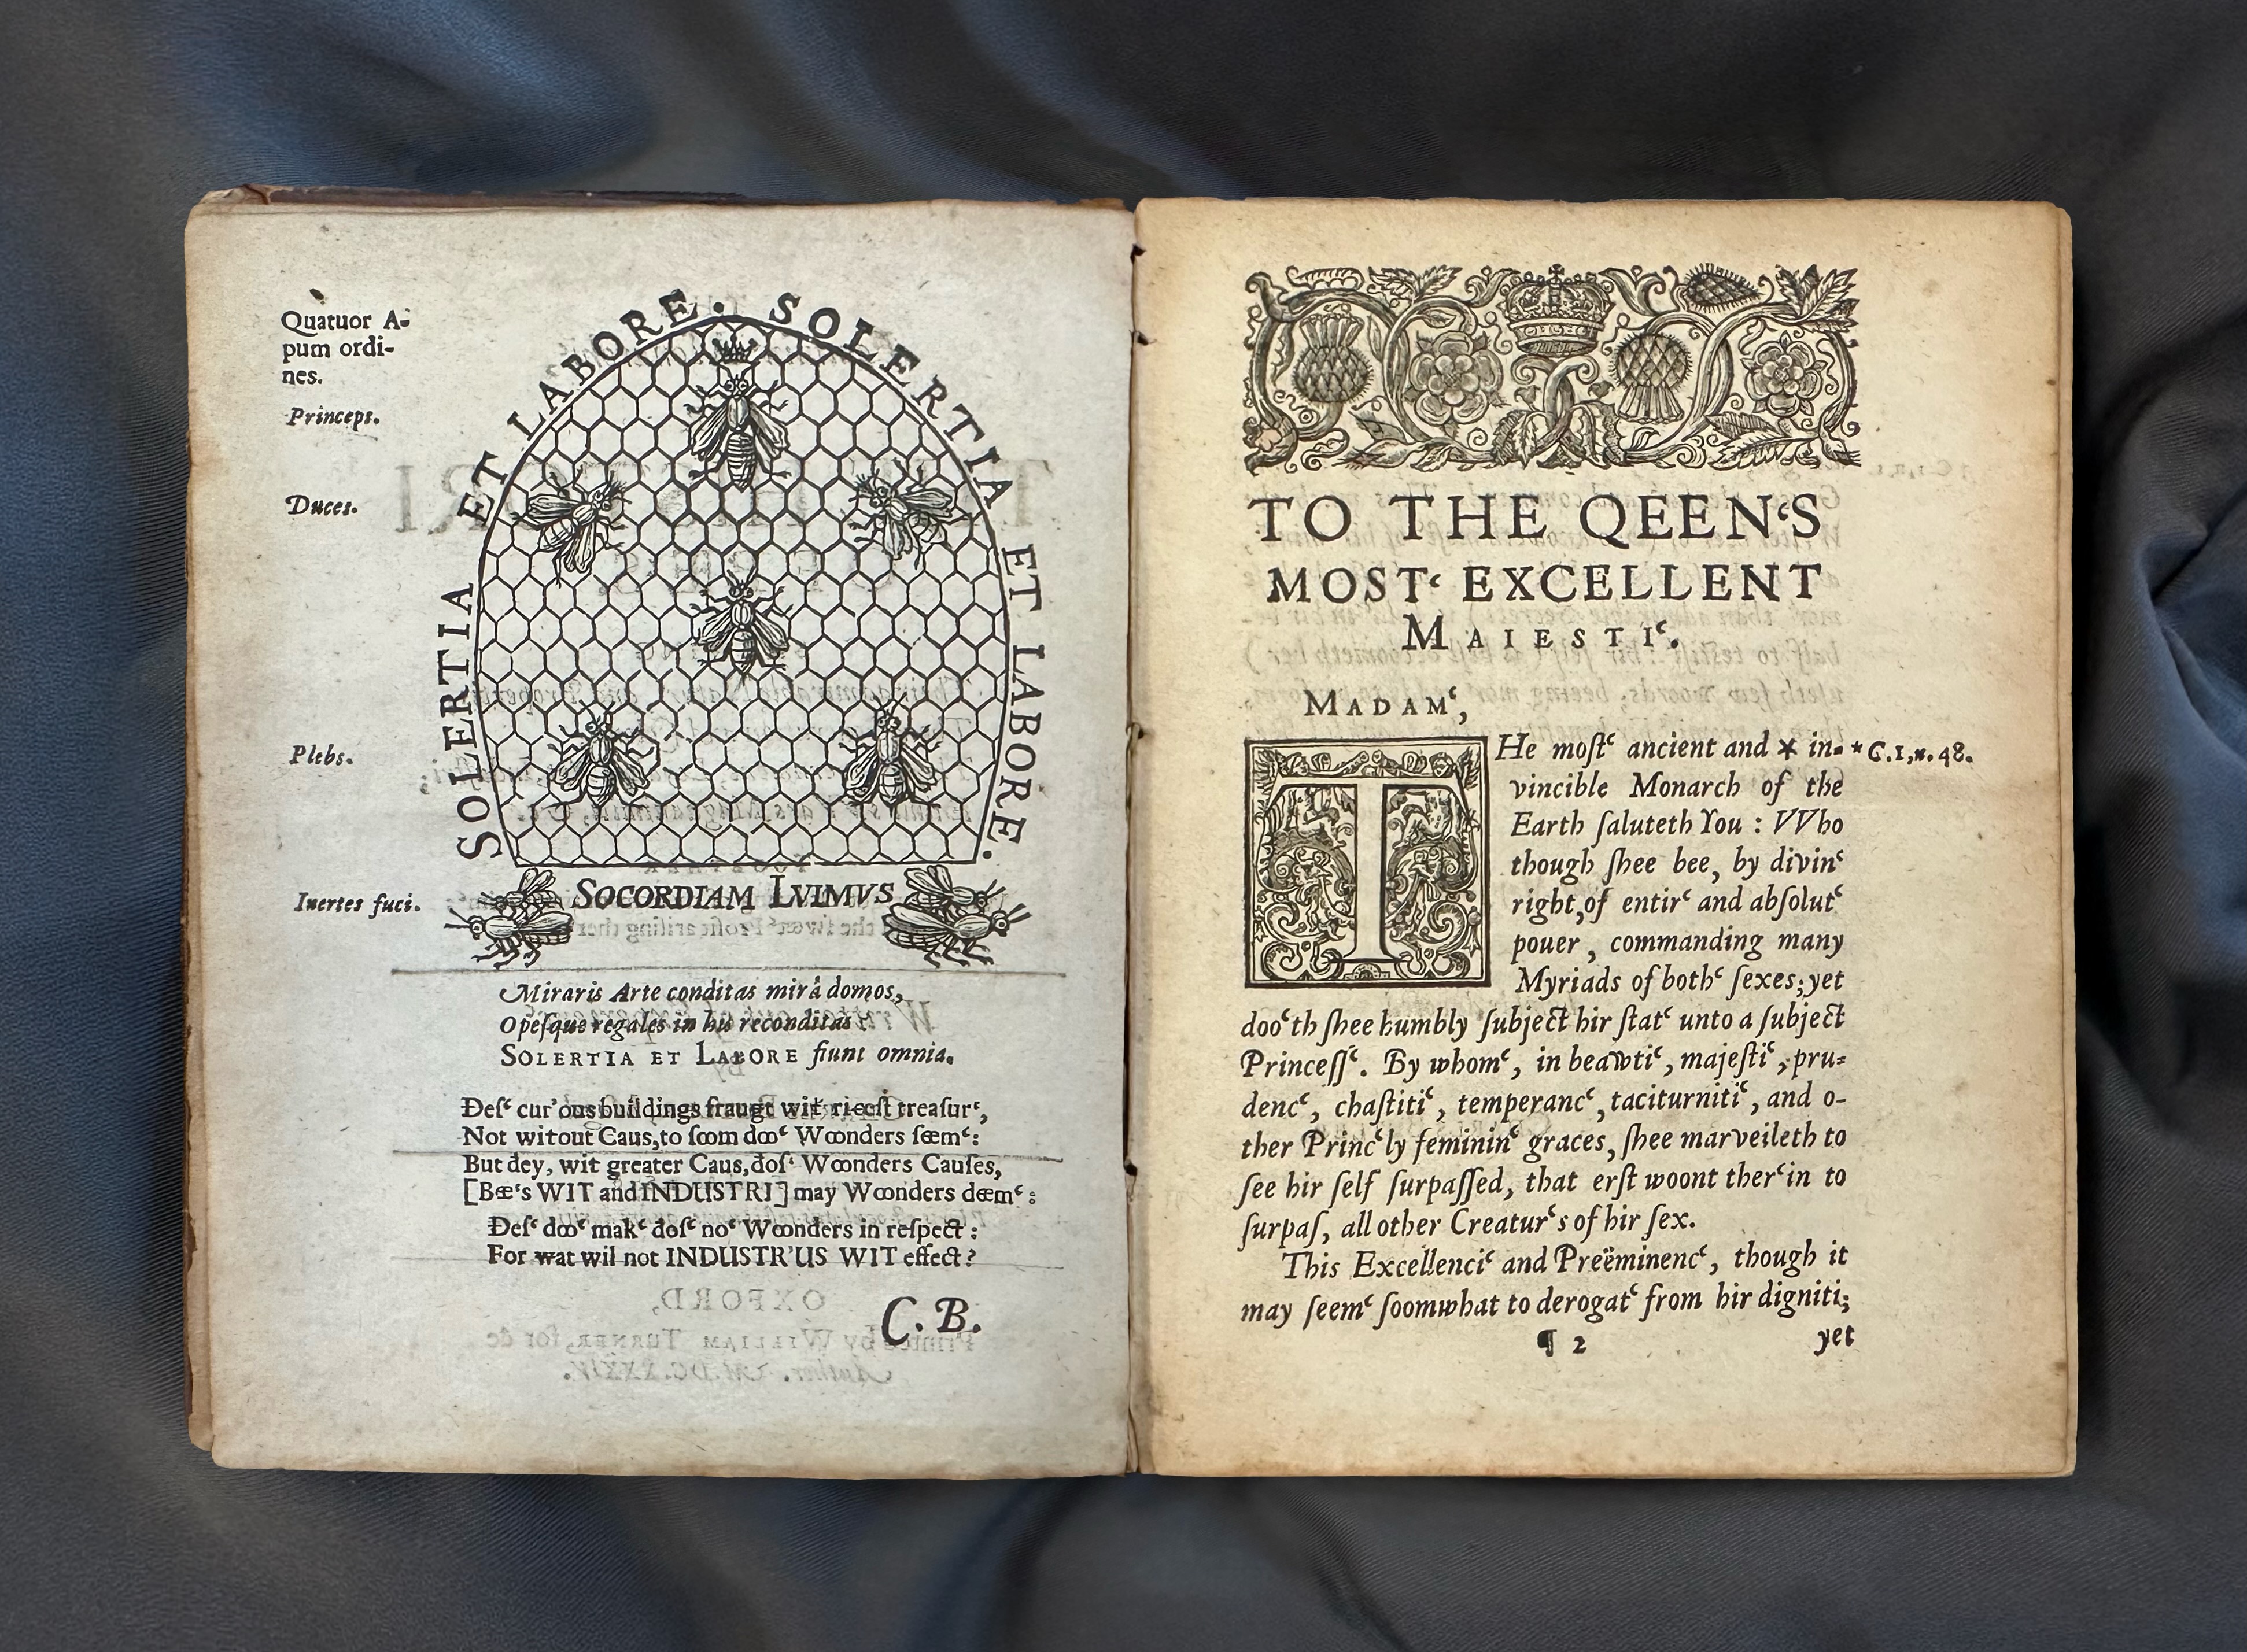 Quatuor A-
pum ordi-
nes.
Princeps.
Duces.
Plebs.
Inertes fuci.
SOLERTIA ET LABORE. SOLERTIA ET LABORE.
SOCORDIAM LVIMVS
Miraris Arte conditas mirâ domos,
Opeſque regales in his reconditas?
SOLERTIA ET LABORE fiunt omnia.
Ðeſ‘ cur'ous buildings fraugt wit ri-eſt treaſur‘,
Not witout Caus, to ſoom doo‘ Woonders ſeem‘:
But ðey, wit greater Caus, ðoſ‘ Woonders Cauſes,
[Bee‘s WIT and INDUSTRI] may Woonders deem‘:
Ðeſ‘ doo‘ mak‘ ðoſ‘ no‘ Woonders in reſpect:
For wat wil not INDUSTR'US WIT effect?
C. B.
TO THE QEEN‘S
MOST‘ EXCELLENT
MAIESTI‘.
MADAM‘,
THe moſt‘ ancient and * in- * C.1,n.48.
vincible Monarch of the
Earth ſaluteth You : VVho
though ſhee bee, by divin‘
right,of entir‘ and abſolut‘
pouer , commanding many
Myriads of both‘ ſexes; yet
doo‘th ſhee humbly ſubject hir ſtat‘ unto a ſubject
Princeſſ‘. By whom‘, in beawti‘, majeſti‘, pru-
denc‘, chaſtiti‘, temperanc‘, taciturniti‘, and o-
ther Princ‘ly feminin‘ graces, ſhee marveileth to
ſee hir ſelf ſurpaſſed, that erſt woont ther‘in to
ſurpaſ, all other Creatur‘s of hir ſex.
This Excellenci‘ and Preëminenc‘, though it
may ſeem‘ ſoomwhat to derogat‘ from hir digniti;
¶ 2 yet